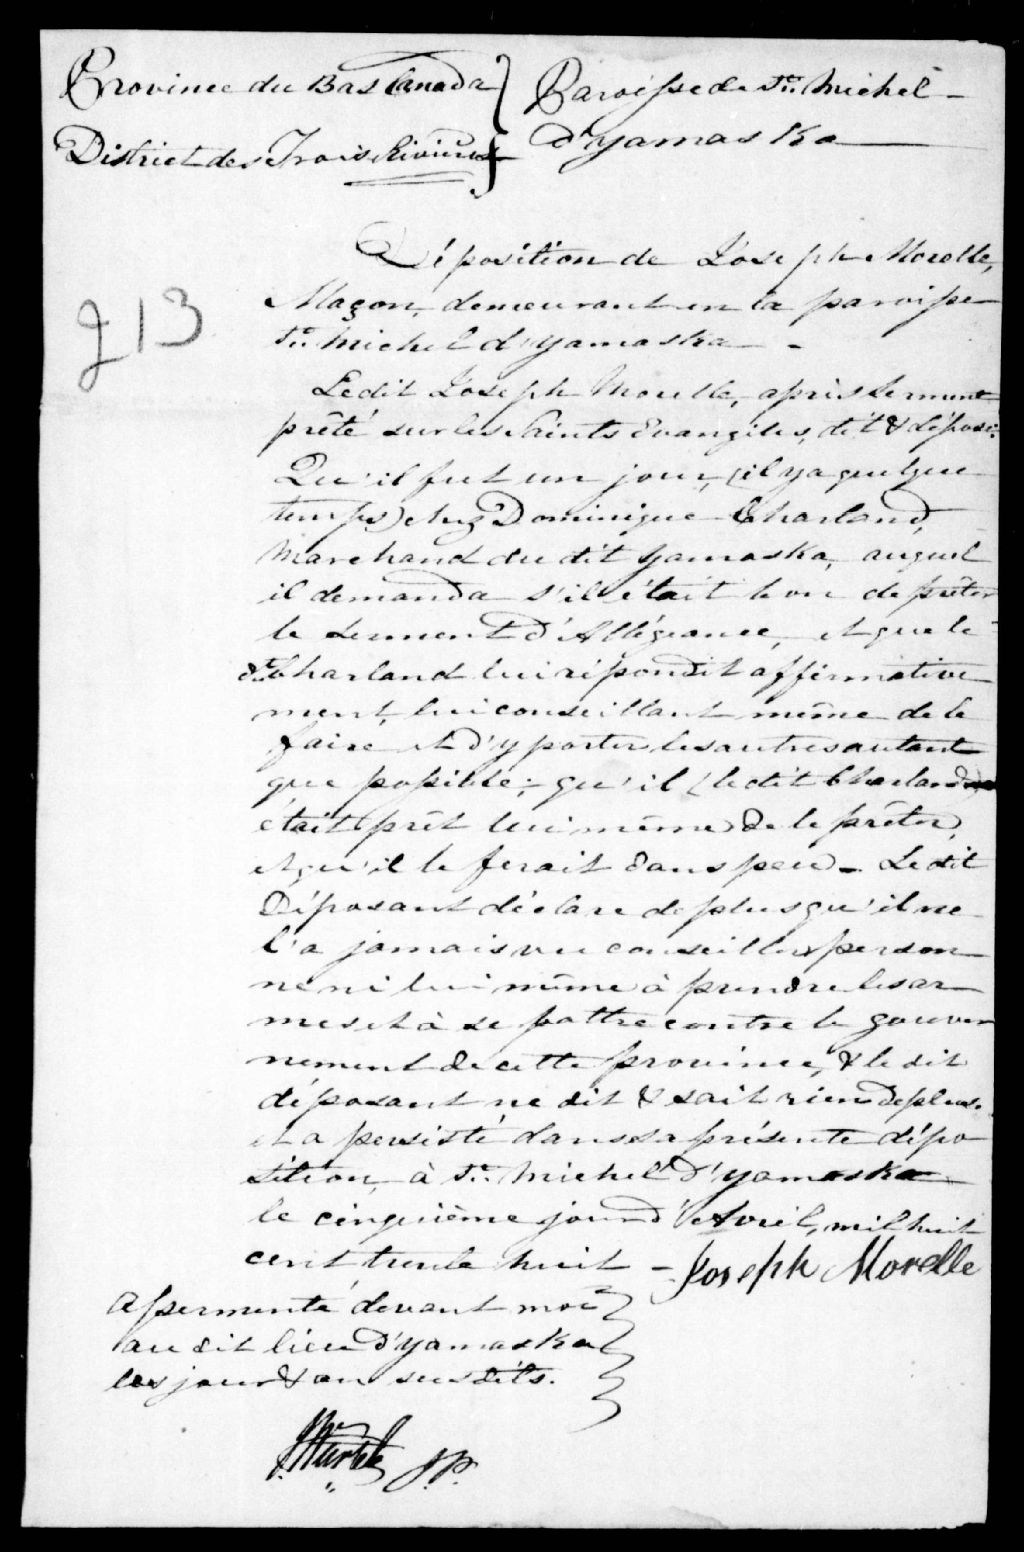 Province du Bas Canada } Paroisse de St. Michel
District des Trois Rivières } d'yamaska
Déposition de Joseph Morelle,
213
Maçon, demeurant en la paroisse
St. Michel d'yamaska -
Ledit Joseph Morelle, après serment
prêté sur les Saints Evangiles, dit & dépose:
Qu'il fut un jour, (il y a quelque
temps) chez Dominique Charland,
Marchand du dit yamaska, auquel
il demanda s'il était bon de prêter
le serment d'Allégeance, et que le
dt. Charland lui répondit affirmative
ment, lui conseillant même de le
faire et d'y porter les autres autant
que possible; qu'il (le dit Charland)
était prêt lui même de le prêter,
et qu'il le ferait dans peu - Le dit
Déposant déclare de plus qu'il ne
l'a jamais vu conseiller person
ne ni lui même à prendre les ar
mes et à se battre contre le gouver
nement de cette province, & le dit
déposant ne dit & sait rien de plus.
et a persisté dans sa présente dépo
sition, à St. Michel d'yamaska
le cinquième jour d'Avril, mil huit
cent trente huit - Joseph Morelle
Assermenté devant moi
au dit lieu d'yamaska
les jour & an susdits.
J. Wurtele J.P.